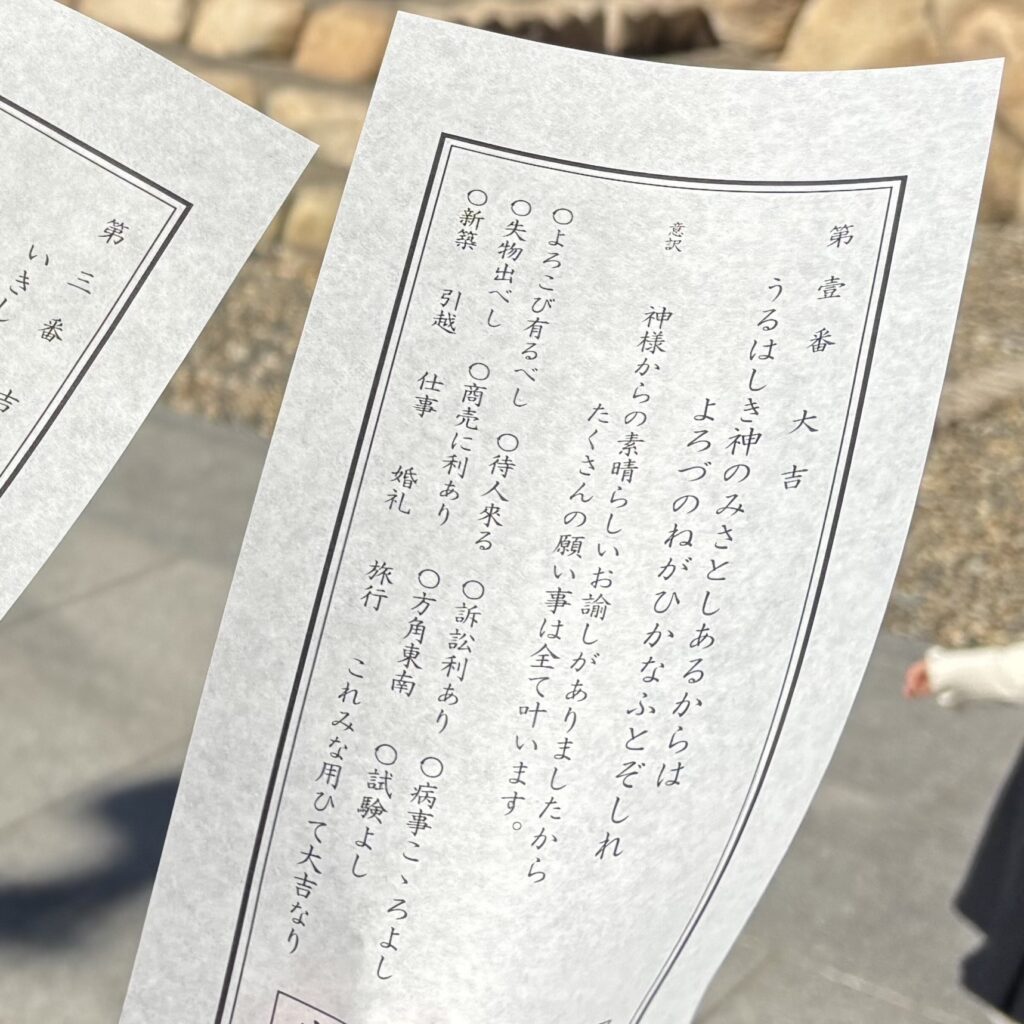 第壹番 大吉
うるはしき神のみさとしあるからは
よろづのねがひかなふとぞしれ
意訳
神様からの素晴らしいお諭しがありましたから
たくさんの願い事は全て叶います。
○よろこび有るべし ○待人来る ○訴訟利あり ○病事こゝろよし
○失物出べし ○商売に利あり ○方角東南 ○試験よし
○新築 引越 仕事 婚礼 旅行 これみな用ひて大吉なり
第三番 吉
いきし